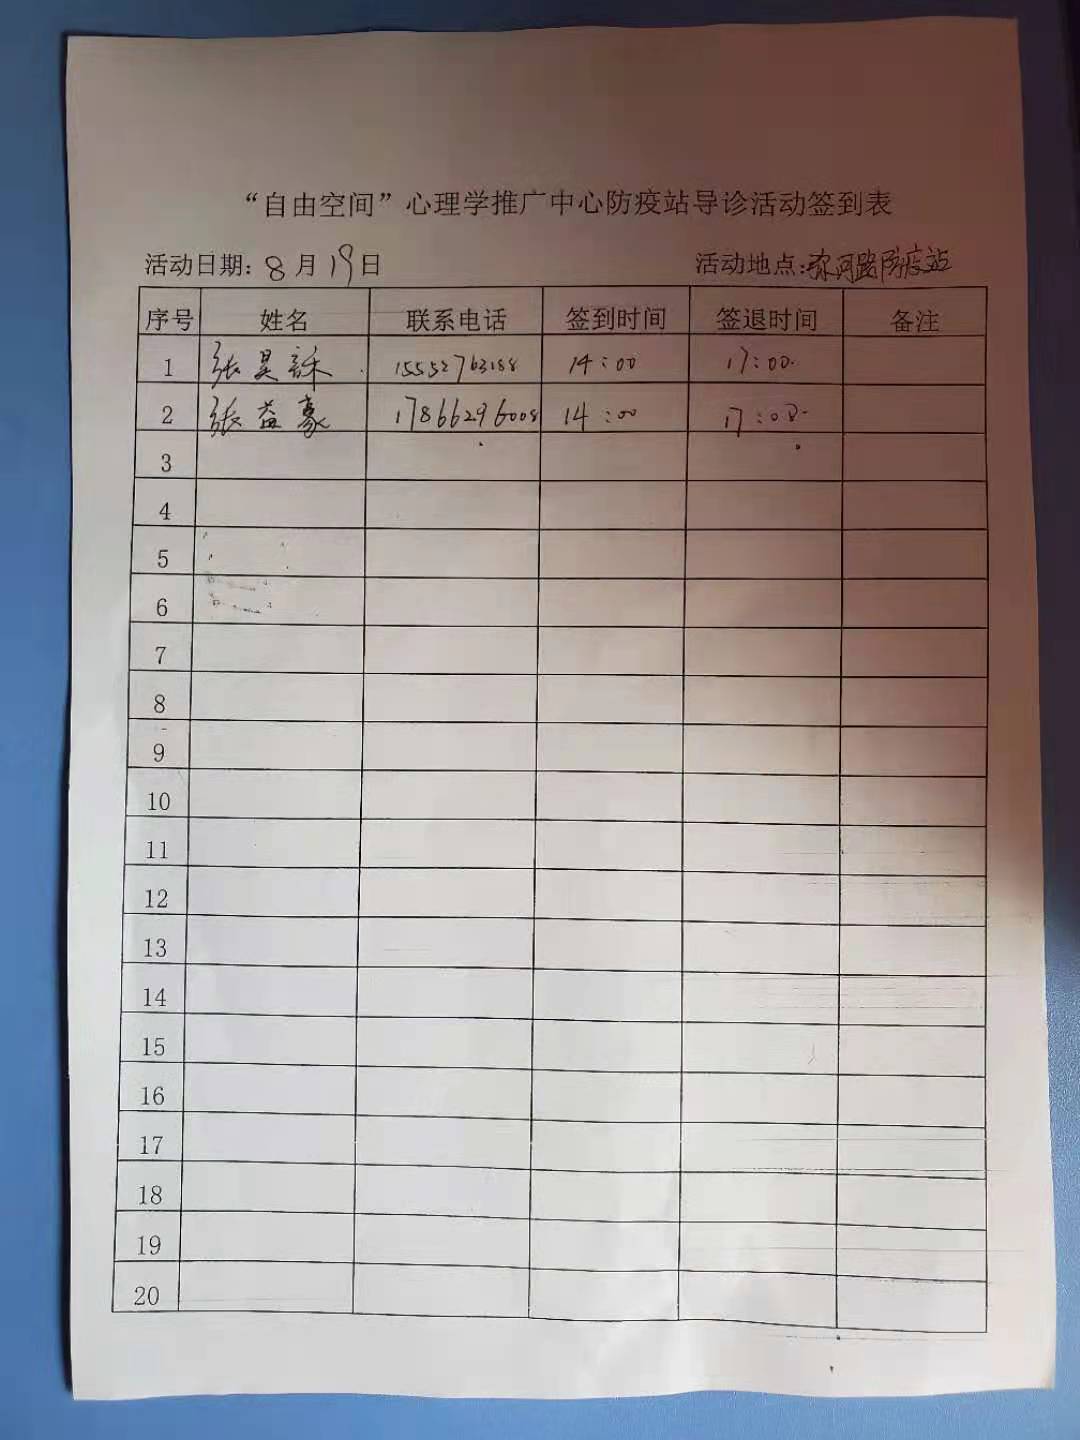 “自由空间”心理学推广中心防疫站导诊活动签到表
活动日期：8月19日 活动地点：弥河路防疫站
序号 姓名 联系电话 签到时间 签退时间 备注
1 张昊 15552763188 14:00 17:00.
2 张益豪 17866296008 14:00 17:00.
3
4
5
6
7
8
9
10
11
12
13
14
15
16
17
18
19
20